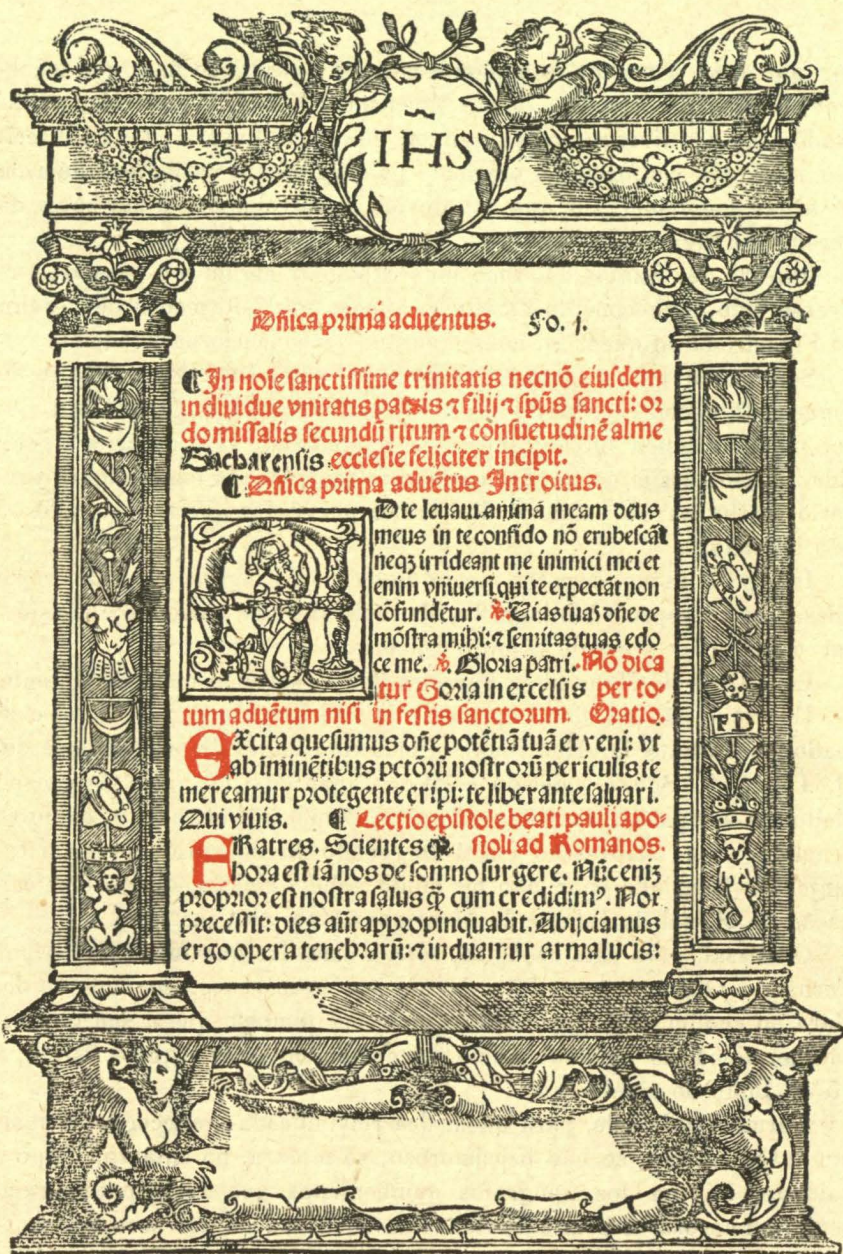 IHS
Dñica prima aduentus. Fo. j.
¶ In noĩe sanctissime trinitatis necnõ eiusdem
indiuidue vnitatis patris ⁊ filij ⁊ spũs sancti: or
do missalis secundũ ritum ⁊ consuetudinẽ alme
Bracharensis ecclesie feliciter incipit.
¶ Dñica prima aduẽtus Introitus.
AD te leuaui animã meam deus
meus in te confido nõ erubescã
neqꝫ irrideant me inimici mei et
enim vniuersi qui te expectãt non
cõfundẽtur. ℣. Vias tuas dñe de
mõstra mihi: ⁊ semitas tuas edo
ce me. ℣. Gloria patri. Nõ dica
tur Goria in excelsis per to-
tum aduẽtum nisi in festis sanctorum. Oratio.
EXcita quesumus dñe potẽtiã tuã et veni: vt
ab iminẽtibus pctõrũ nostrorũ periculis te
mereamur protegente eripi: te liberante saluari.
Qui viuis. ¶ Lectio epistole beati pauli apo-
FRatres. Scientes qꝛ stoli ad Romanos.
hora est iã nos de somno surgere. Nũc eniꝫ
proprior est nostra salus q̃ cum credidimꝰ. Nox
precessit: dies aũt appropinquabit. Abijciamus
ergo opera tenebrarũ: ⁊ induamur arma lucis:
FD
1534